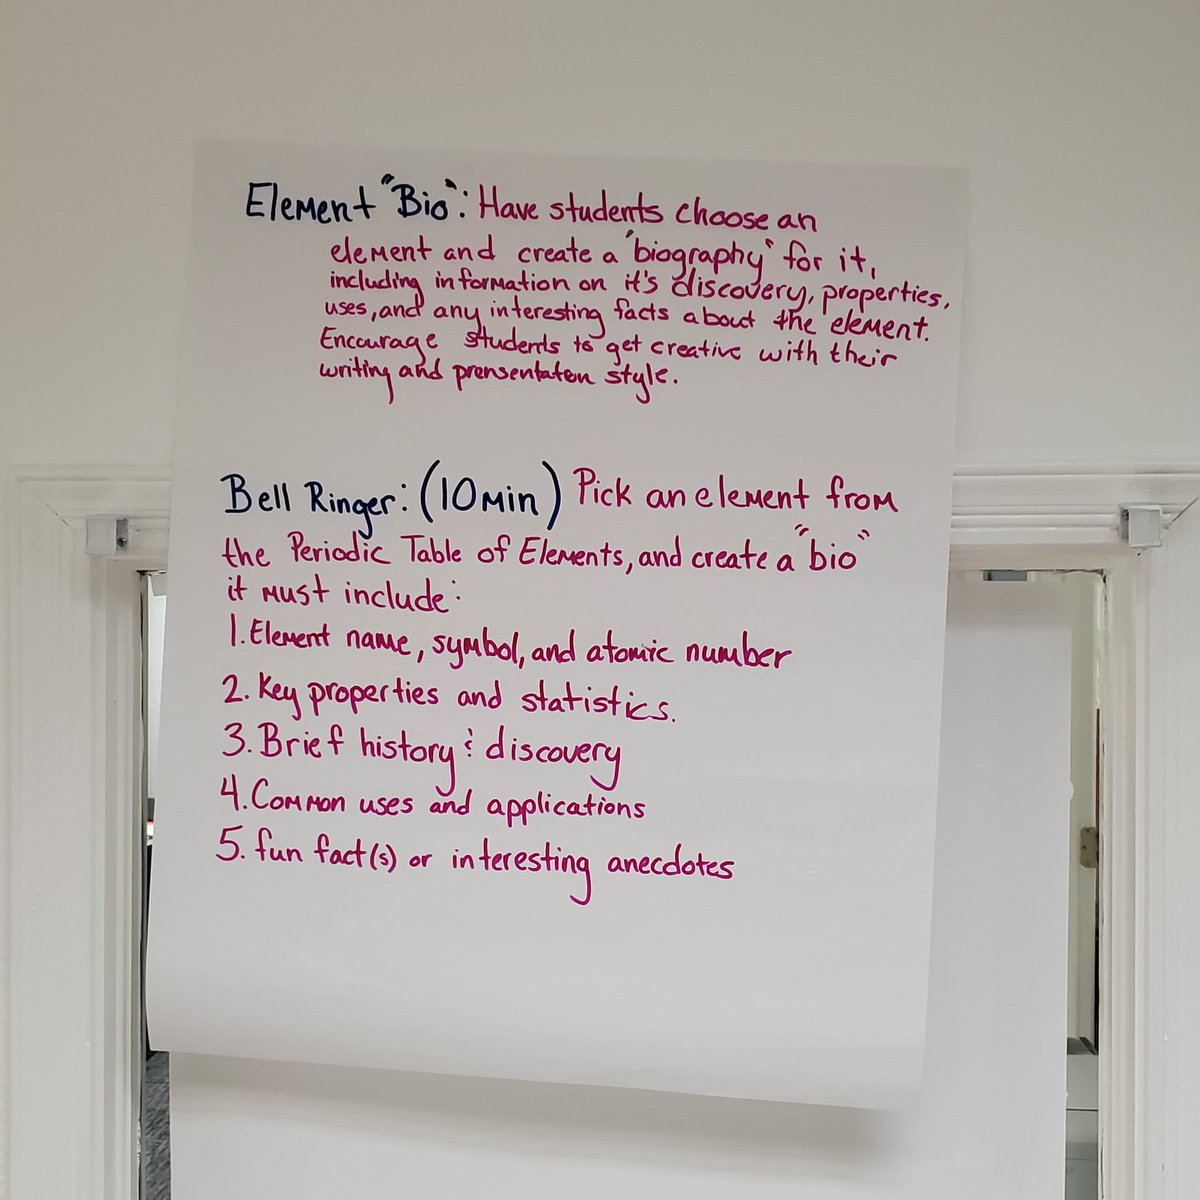 Element "Bio": Have students choose an
element and create a "biography" for it,
including information on it's discovery, properties,
uses, and any interesting facts about the element.
Encourage students to get creative with their
writing and prensentaton style.
Bell Ringer: (10 min) Pick an element from
the Periodic Table of Elements, and create a "bio"
it must include:
1. Element name, symbol, and atomic number
2. Key properties and statistics.
3. Brief history & discovery
4. Common uses and applications
5. fun fact(s) or interesting anecdotes